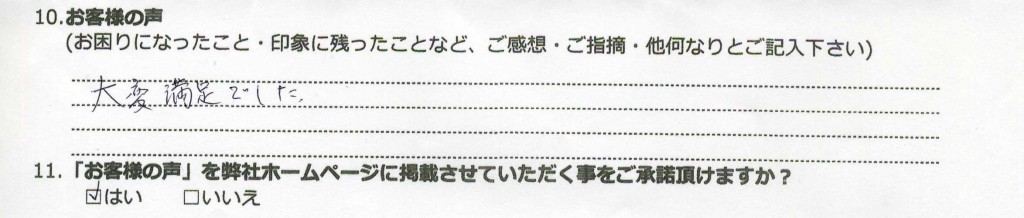 10.お客様の声
(お困りになったこと・印象に残ったことなど、ご感想・ご指摘・他何なりとご記入下さい)
大変満足でした.
11.「お客様の声」を弊社ホームページに掲載させていただく事をご承諾頂けますか？
☑はい □いいえ